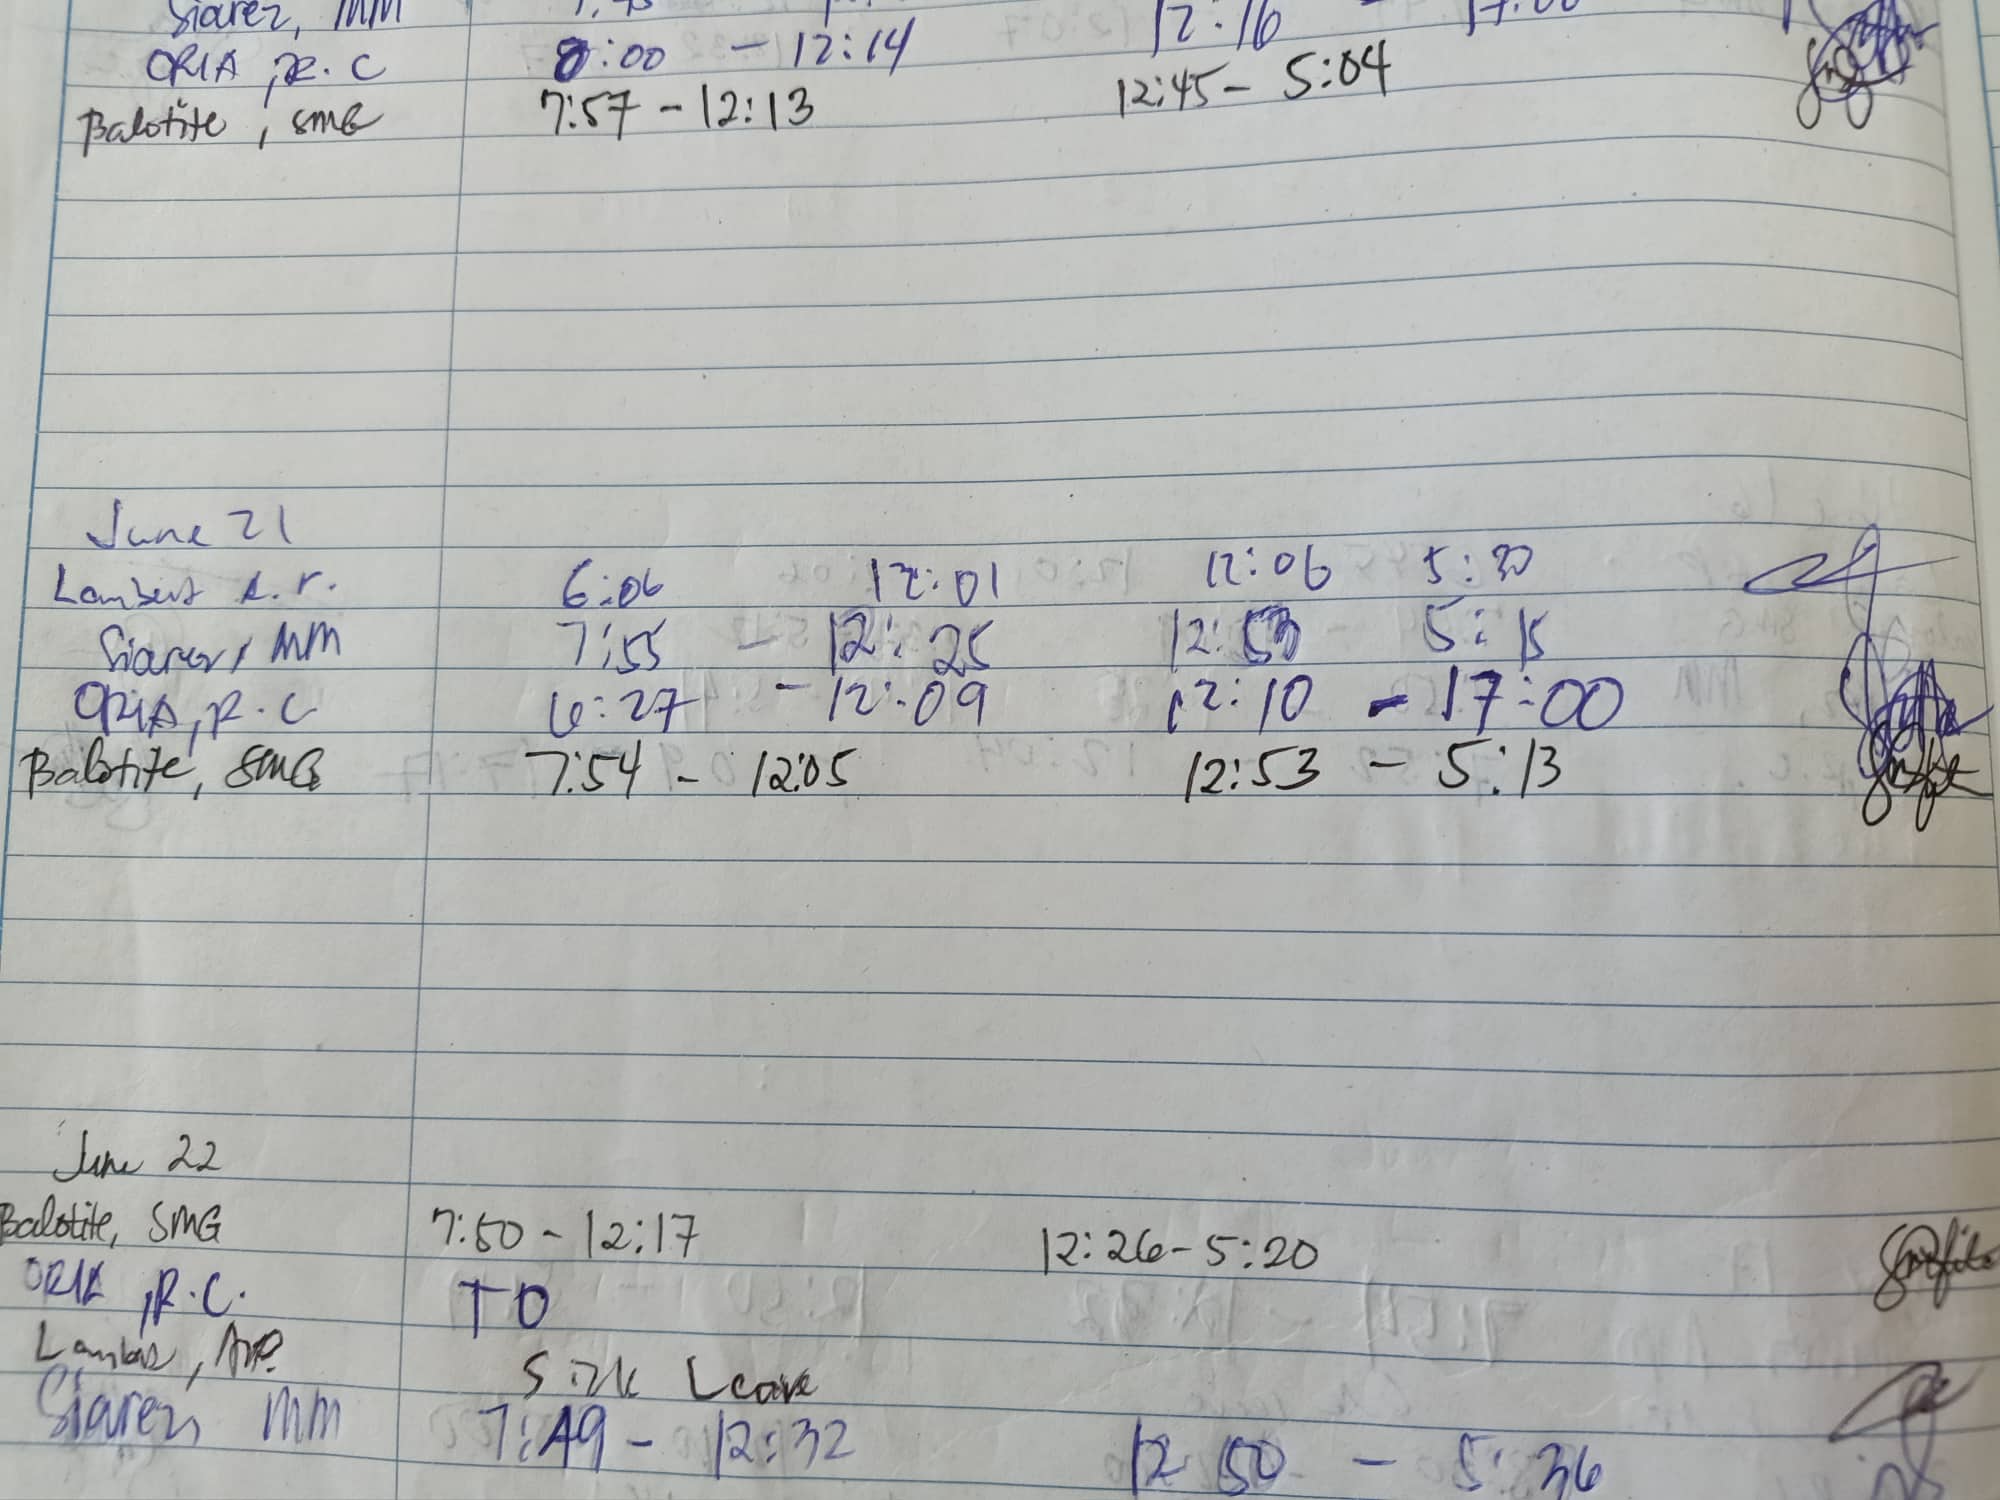 Siarez, MM 12:16 - 17:00
ORIA, R.C 8:00 - 12:14
Balotite, SMG 7:57 - 12:13 12:45 - 5:04
June 21
Lambert A.P. 6:06 12:01 12:06 5:30
Siarez, MM 7:55 - 12:25 12:53 5:15
ORIA, R.C 6:27 - 12:09 12:10 - 17:00
Balotite, SMG 7:54 - 12:05 12:53 - 5:13
June 22
Balotite, SMG 7:50 - 12:17 12:26 - 5:20
ORIA, R.C. TO
Sick Leave
Siarez, MM 7:49 - 12:32 12 50 - 5:36